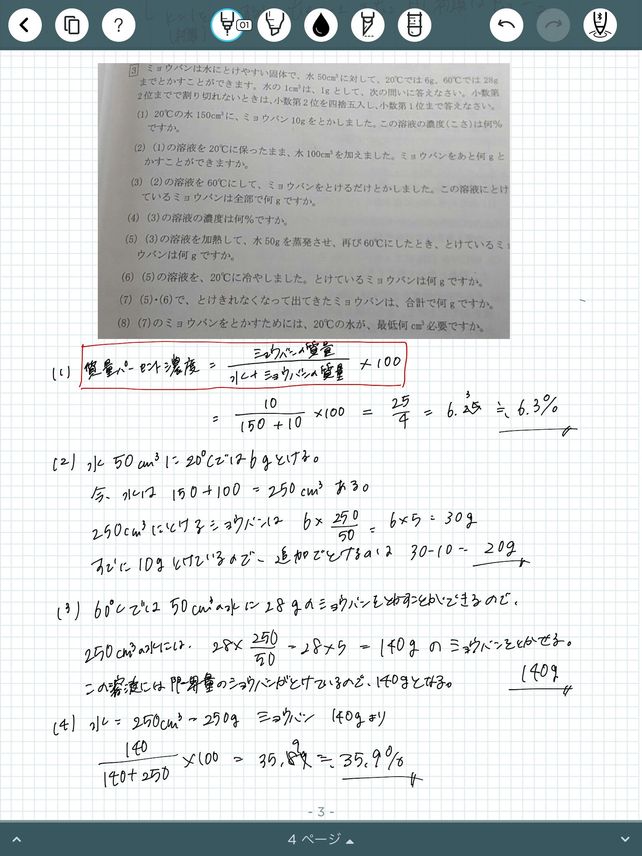 ?
01
3 ミョウバンは水にとけやすい固体で、水50cm³に対して、20℃では6g、60℃では28g
までとかすことができます。水の1cm³は、1gとして、次の問いに答えなさい。小数第
2位までで割り切れないときは、小数第2位を四捨五入し、小数第1位まで答えなさい。
(1) 20℃の水150cm³に、ミョウバン10gをとかしました。この溶液の濃度(こさ)は何%
ですか。
(2) (1)の溶液を20℃に保ったまま、水100cm³を加えました。ミョウバンをあと何gと
かすことができますか。
(3) (2)の溶液を60℃にして、ミョウバンをとけるだけとかしました。この溶液にとけ
ているミョウバンは全部で何gですか。
(4) (3)の溶液の濃度は何%ですか。
(5) (3)の溶液を加熱して、水50gを蒸発させ、再び60℃にしたとき、とけているミ
ウバンは何gですか。
(6) (5)の溶液を、20℃に冷やしました。とけているミョウバンは何gですか。
(7) (5)・(6)で、とけきれなくなって出てきたミョウバンは、合計で何gですか。
(8) (7)のミョウバンをとかすためには、20℃の水が、最低何cm³必要ですか。
(1) 質量パーセント濃度 = ミョウバンの質量 / 水+ミョウバンの質量 × 100
= 10 / 150 + 10 × 100 = 25 / 4 = 6.25 ≒ 6.3%
(2) 水 50cm³に20℃では6gとける。
今、水は 150 + 100 = 250cm³ ある。
250cm³にとけるミョウバンは 6 × 250 / 50 = 6×5 = 30g
すでに10gとけているので、追加でとけるのは 30-10 = 20g
(3) 60℃では 50cm³の水に 28gのミョウバンをとかすことができるので、
250cm³の水には、28× 250 / 50 = 28×5 = 140g のミョウバンをとかせる。
この溶液には限界量のミョウバンがとけているので、140gとなる。 140g
(4) 水 = 250cm³ = 250g ミョウバン 140gより
140 / 140 + 250 ×100 = 35.89 ≒ 35.9%
- 3 -
4 ページ